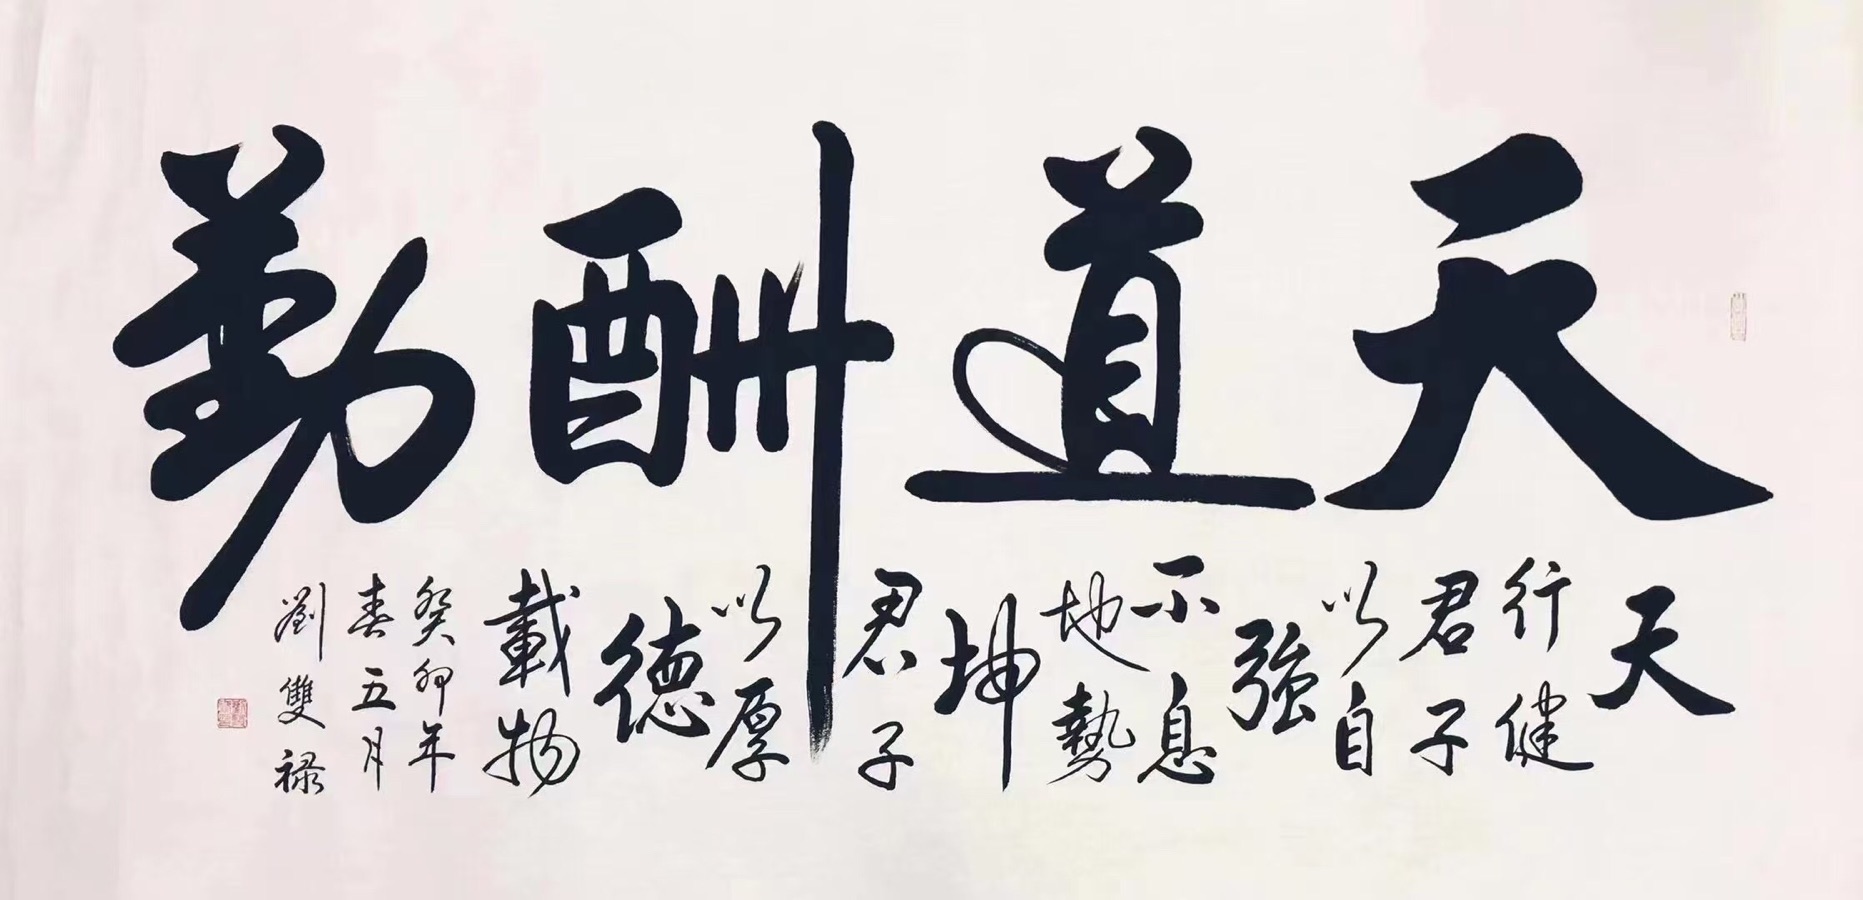 天道酬勤
天
行健
君子
以自
強
不息
地勢
坤
君子
以厚
德
載物
癸卯年
春五月
劉雙禄